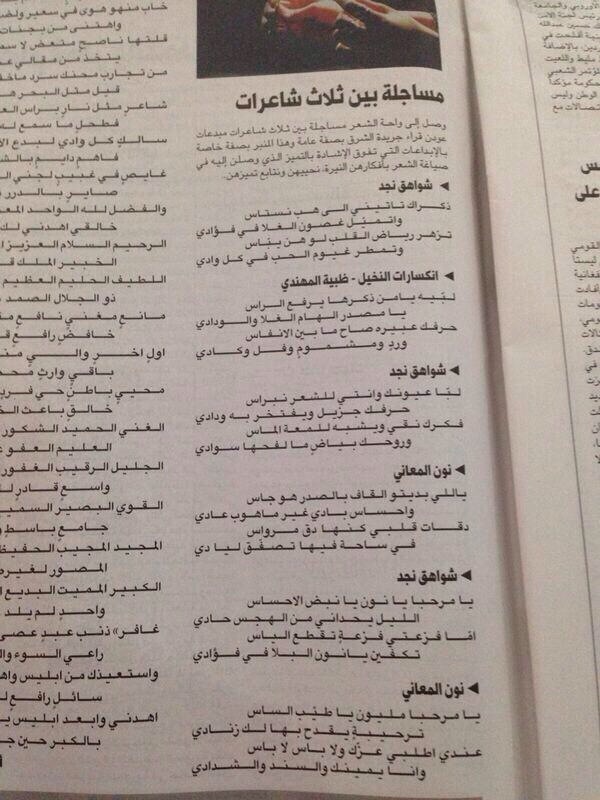 الأوروبي والجامعة
رئيس لجنة الأمن
حسين عبدالله
أفلحت في
بالإضافة
مليط واللعيت
الشعبي
حكومة مؤكداً
الوطن وليس
مع
على
القومي
ليستا
في
مساجلة بين ثلاث شاعرات
وصل إلى واحة الشعر مساجلة بين ثلاث شاعرات مبدعات
عودن قراء جريدة الشرق بصفة عامة وهذا المنبر بصفة خاصة
بالإبداعات التي تفوق الإشادة بالتميز الذي وصلن إليه في
صياغة الشعر بأفكارهن النيرة، نحييهن ونتابع تميزهن.
◄ شواهق نجد
ذكراك تاتيني الى هب نسناس
واتميّل غصون الغلا في فؤادي
تزهر رياض القلب لو هن يبّاس
وتمطر غيوم الحب في كل وادي
◄ انكسارات النخيل - ظبية المهندي
لبّيه يامن ذكرها يرفع الراس
يا مصدر إلهام الغلا والودادي
حرفك عبيره صاح ما بين الانفاس
وردٍ ومشمومٍ وفل وكادي
◄ شواهق نجد
لبّا عيونك وانتي للشعر نبراس
حرفك جزيل ويفتخر به ودادي
فكرك نقي ويشبه للمعة الماس
وروحك بياضٍ ما لفحها سوادي
◄ نون المعاني
ياللي بديتو القاف بالصدر هو جاس
واحساس بادي غير ماهوب عادي
دقات قلبي كنها دق مرواس
في ساحة فيها تصفّق ليا دي
◄ شواهق نجد
يا مرحبا يا نون يا نبض الاحساس
الليل يحداني من الهجس حادي
امّا فزعتي فزعةٍ تقطع الياس
تكفين يانون البلا في فؤادي
◄ نون المعاني
يا مرحبا مليون يا طيّب الساس
ترحيبةٍ يقدح بها لك زنادي
عندي اطلبي عزّك ولا باس لا باس
وانا يمينك والسند والشدادي
خاب منهو هوى في سعير
واهتنى من بجنات
قلتها ناصحٍ متعض لا
يتخذ من مقالي
من تجارب محنك سرد
قيل مثل البحر
شاعرٍ مثل نارٍ براس
فطحلٍ ما سمع
سالكٍ كل وادي لبدع
فاهم دايم
غايصٍ في غبيبٍ لجني
صايرٍ بالدرر
والفضل لله الواحد
خالقي اهدني لك
الرحيم السلام العزيز
الخبير الملك
اللطيف الحليم العظيم
ذو الجلال الصمد
مانعٍ مغني نافعٍ
خافضٍ رافعٍ
اولٍ اخرٍ والي
باقي وارثٍ
محيي باطنٍ حي
خالقٍ باعث
الغني الحميد الشكور
العليم العفو
الجليل الرقيب الغفور
واسعٍ قادرٍ
القوي البصير السميع
جامعٍ باسطٍ
المجيد المجيب الحفيظ
المصور لغيره
الكبير المميت البديع
واحدٍ لم يلد
غافر» ذنب عبدٍ عصى
راعي السوء
واستعيذك من ابليس
سائلٍ رافعٍ
اهدني وابعد ابليس
بالكبر حين